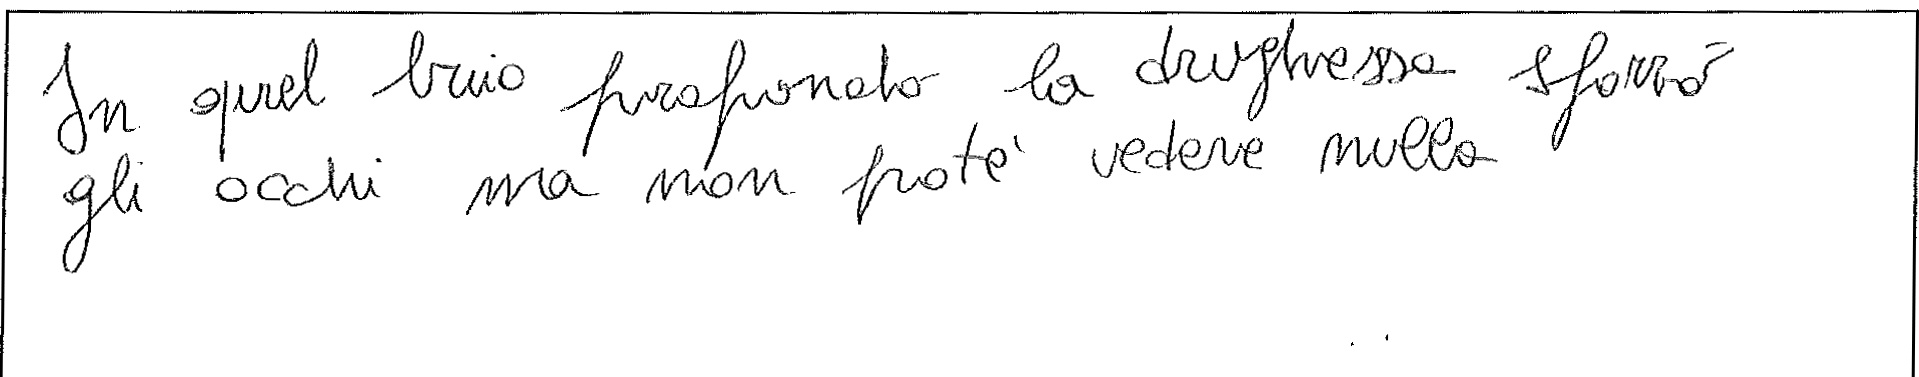 In quel buio profondo la drughessa sforzò
gli occhi ma non poté vedere nulla